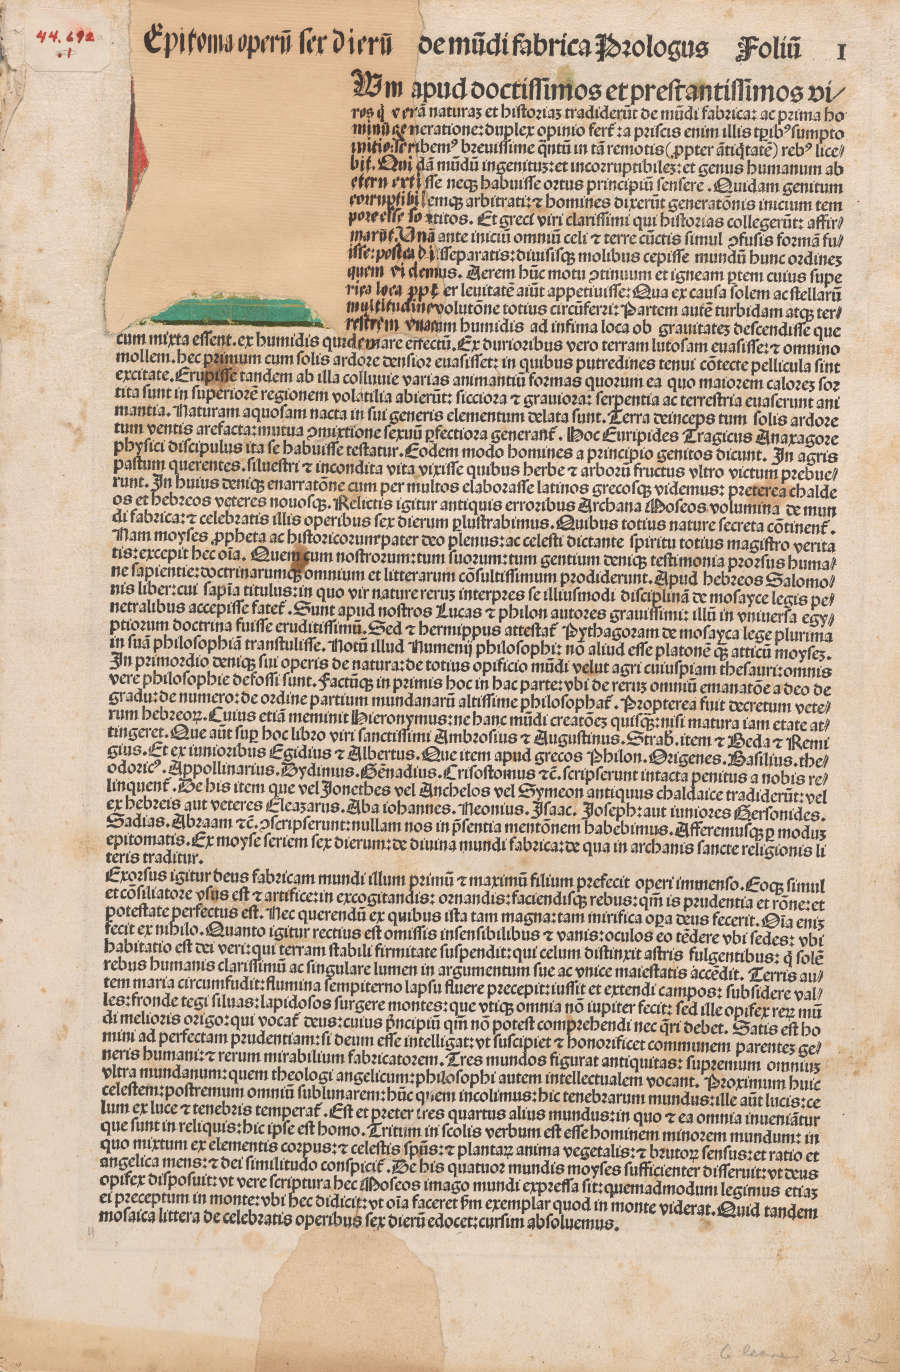 44.692
.1
Epitoma operū sex dierū de mūdi fabrica Prologus Foliū 1
Vm apud doctissimos et prestantissimos vi/
ros q̄ verā naturaꝫ et historiaꝫ tradiderūt de mūdi fabrica: ac prima ho
minū generatione: duplex opinio fert᷑: a priscis enim illis tꝑib᷒ sumpto
initio: scribem᷒ breuissime q̄ntū in tā remotis (ꝓpter ātiq̄tatē) reb᷒ lice/
bit. Quidā mūdū ingenituꝫ: et incorruptibileꝫ: et genus humanum ab
eterno extitisse neqꝫ habuisse ortus principiū sensere. Quidam genitum
corruptibilemqꝫ arbitrati: ⁊ homines dixerūt generatōnis inicium tem
pore esse sortitos. Et greci viri clarissimi qui historias collegerūt: affir/
marūt. Vnā ante iniciū omniū celi ⁊ terre cūctis simul ꝯfusis formā fu/
isse: postea disseparatis: diuisisqꝫ molibus cepisse mundū hunc ordineꝫ
quem videmus. Aerem hūc motu ꝯtinuum et igneam ꝑtem cuius supe
riora loca ꝓpter leuitatē aiūt appetiuisse: Qua ex causa solem ac stellarū
multitudinē volutōne totius circūferri: Partem autē turbidam atqꝫ ter/
restrem vnacum humidis ad infima loca ob grauitateꝫ descendisse que
cum mixta essent. ex humidis quidem mare effectū. Ex durioribus vero terram lutosam euasisse: ⁊ omnino
mollem. hec primum cum solis ardore densior euasisset: in quibus putredines tenui cōtecte pellicula sint
excitate. Erupisse tandem ab illa colluuie varias animantiū formas quorum ea quo maiorem caloreꝫ sor
tita sunt in superiorē regionem volatilia abierūt: sicciora ⁊ grauiora: serpentia ac terrestria euaserunt ani
mantia. Naturam aquosam nacta in sui generis elementum delata sunt. Terra deinceps tum solis ardore
tum ventis arefacta: mutua ꝯmixtione sexuū ꝑfectiora generant᷑. Hoc Euripides Tragicus Anaxagore
physici discipulus ita se habuisse testatur. Eodem modo homines a principio genitos dicunt. In agris
pastum querentes. siluestri ⁊ incondita vita vixisse quibus herbe ⁊ arborū fructus vltro victum prebue/
runt. In huius deniqꝫ enarratōne cum per multos elaborasse latinos grecosqꝫ videmus: preterea chalde
os et hebreos veteres nouosqꝫ. Relictis igitur antiquis erroribus Archana Moseos volumina de mun
di fabrica: ⁊ celebratis illis operibus sex dierum ꝑlustrabimus. Quibus totius nature secreta cōtinent᷑.
Nam moyses ꝓpheta ac historicorum pater deo plenus: ac celesti dictante spiritu totius magistro verita
tis: excepit hec oīa. Quem cum nostrorum: tum suorum: tum gentium deniqꝫ testimonia prorsus huma/
ne sapientie: doctrinarumqꝫ omnium et litterarum cōsultissimum prodiderunt. Apud hebreos Salomo/
nis liber: cui sapīa titulus: in quo vir nature reruꝫ interpres se illiusmodi disciplinā de mosayce legis pe/
netralibus accepisse fatet᷑. Sunt apud nostros Lucas ⁊ philon autores grauissimi: illū in vniuersa egy/
ptiorum doctrina fuisse eruditissimū. Sed ⁊ hermippus attestat᷑ Pythagoram de mosayca lege plurima
in suā philosophiā transtulisse. Notū illud Numenij philosophi: nō aliud esse platonē q̄ꝫ atticū moyseꝫ.
In primordio deniqꝫ sui operis de natura: de totius opificio mūdi velut agri cuiuspiam thesauri: omnis
vere philosophie defossi sunt. Factūqꝫ in primis hoc in hac parte: vbi de reruꝫ omniū emanatōne a deo de
gradu: de numero: de ordine partium mundanarū altissime philosophat᷑. Propterea fuit decretum vete/
rum hebreoꝝ. Cuius etiā meminit Hieronymus: ne hanc mūdi creatōeꝫ quisqꝫ: nisi matura iam etate at/
tingeret. Que aūt suꝑ hoc libro viri sanctissimi Ambrosius ⁊ Augustinus. Strab. item ⁊ Beda ⁊ Remi
gius. Et ex iunioribus Egidius ⁊ Albertus. Que item apud grecos Philon. Origenes. Basilius. the/
odoric᷒. Appollinarius. Dydimus. Gēnadius. Crisostomus ⁊ ꝛc̄. scripserunt intacta penitus a nobis re/
linquent᷑. De his item que vel Jonethes vel Anchelos vel Symeon antiquus chaldaice tradiderūt: vel
ex hebreis aut veteres Eleazarus. Aba iohannes. Neonius. Isaac. Joseph: aut iuniores Gersonides.
Sadias. Abraam ⁊ ꝛc̄. ꝯscripserunt: nullam nos in p̄sentia mentōnem habebimus. Afferemusqꝫ ꝑ moduꝫ
epitomatis. Ex moyse seriem sex dierum: de diuina mundi fabrica: de qua in archanis sancte religionis li
teris traditur.
Exorsus igitur deus fabricam mundi illum primū ⁊ maximū filium prefecit operi immenso. Eoqꝫ simul
et cōsiliatore vsus est ⁊ artifice: in excogitandis: ornandis: faciendisqꝫ rebus: qm̄ is prudentia et rōne: et
potestate perfectus est. Nec querendū ex quibus ista tam magna: tam mirifica oꝑa deus fecerit. Oīa eniꝫ
fecit ex nihilo. Quanto igitur rectius est omissis insensibilibus ⁊ vanis: oculos eo tēdere vbi sedes: vbi
habitatio est dei veri: qui terram stabili firmitate suspendit: qui celum distinxit astris fulgentibus: q̄ solē
rebus humanis clarissimū ac singulare lumen in argumentum sue ac vnice maiestatis accēdit. Terris au/
tem maria circumfudit: flumina sempiterno lapsu fluere precepit: iussit et extendi campos: subsidere val/
les: fronde tegi siluas: lapidosos surgere montes: que vtiqꝫ omnia nō iupiter fecit: sed ille opifex reꝝ mū
di melioris origo: qui vocat᷑ deus: cuius p̄ncipiū qm̄ nō potest comprehendi nec q̄ri debet. Satis est ho
mini ad perfectam prudentiam: si deum esse intelligat: vt suscipiet ⁊ honorificet communem parenteꝫ ge/
neris humani: ⁊ rerum mirabilium fabricatorem. Tres mundos figurat antiquitas: supremum omniuꝫ
vltra mundanum: quem theologi angelicum: philosophi autem intellectualem vocant. Proximum huic
celestem: postremum omniū sublunarem: hūc quem incolimus: hic tenebrarum mundus: ille aūt lucis: ce
lum ex luce ⁊ tenebris temperat᷑. Est et preter tres quartus alius mundus: in quo ⁊ ea omnia inueniātur
que sunt in reliquis: hic ipse est homo. Tritum in scolis verbum est esse hominem minorem mundum: in
quo mixtum ex elementis corpus: ⁊ celestis spūs: ⁊ plantaꝝ anima vegetalis: ⁊ brutoꝝ sensus: et ratio et
angelica mens: ⁊ dei similitudo conspicit᷑. De his quatuor mundis moyses sufficienter disseruit: vt deus
opifex disposuit: vt vere scriptura hec Moseos imago mundi expressa sit: quemadmodum legimus etiaꝫ
ei preceptum in monte: vbi hec didicit: vt oīa faceret ẜm exemplar quod in monte viderat. Quid tandem
mosaica littera de celebratis operibus sex dierū edocet: cursim absoluemus.